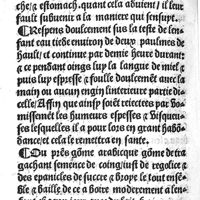 che/ ⁊ estomach. quant cela aduient/ il leur
fault subuenir a la maniere qui sensuyt.
¶Respens doulcement sus la teste de len-
fant eau tiede enuiron de deux paulmes de
hault/ et continue par demie heure durant:
⁊ ce pendant oings luy la langue de miel ⁊
puis luy espresse ⁊ foulle doulcemēt auec la
main ou aucun engin linterieure partie di-
celle/ Affin que ainsy soiēt reiectees par vo-
missemēt les humeurs espesses ⁊ visqueu-
ses lesquelles il a pour lors en grant habō-
dāce/ et cela le remettra en sante.
¶Ou prēs gōme arabicque gōme de tra
gachant semence de coing/ iust de regolice ⁊
des epanicles de succre ⁊ broye le tout ensem-
ble ⁊ baille de ce a boire moderement a len-